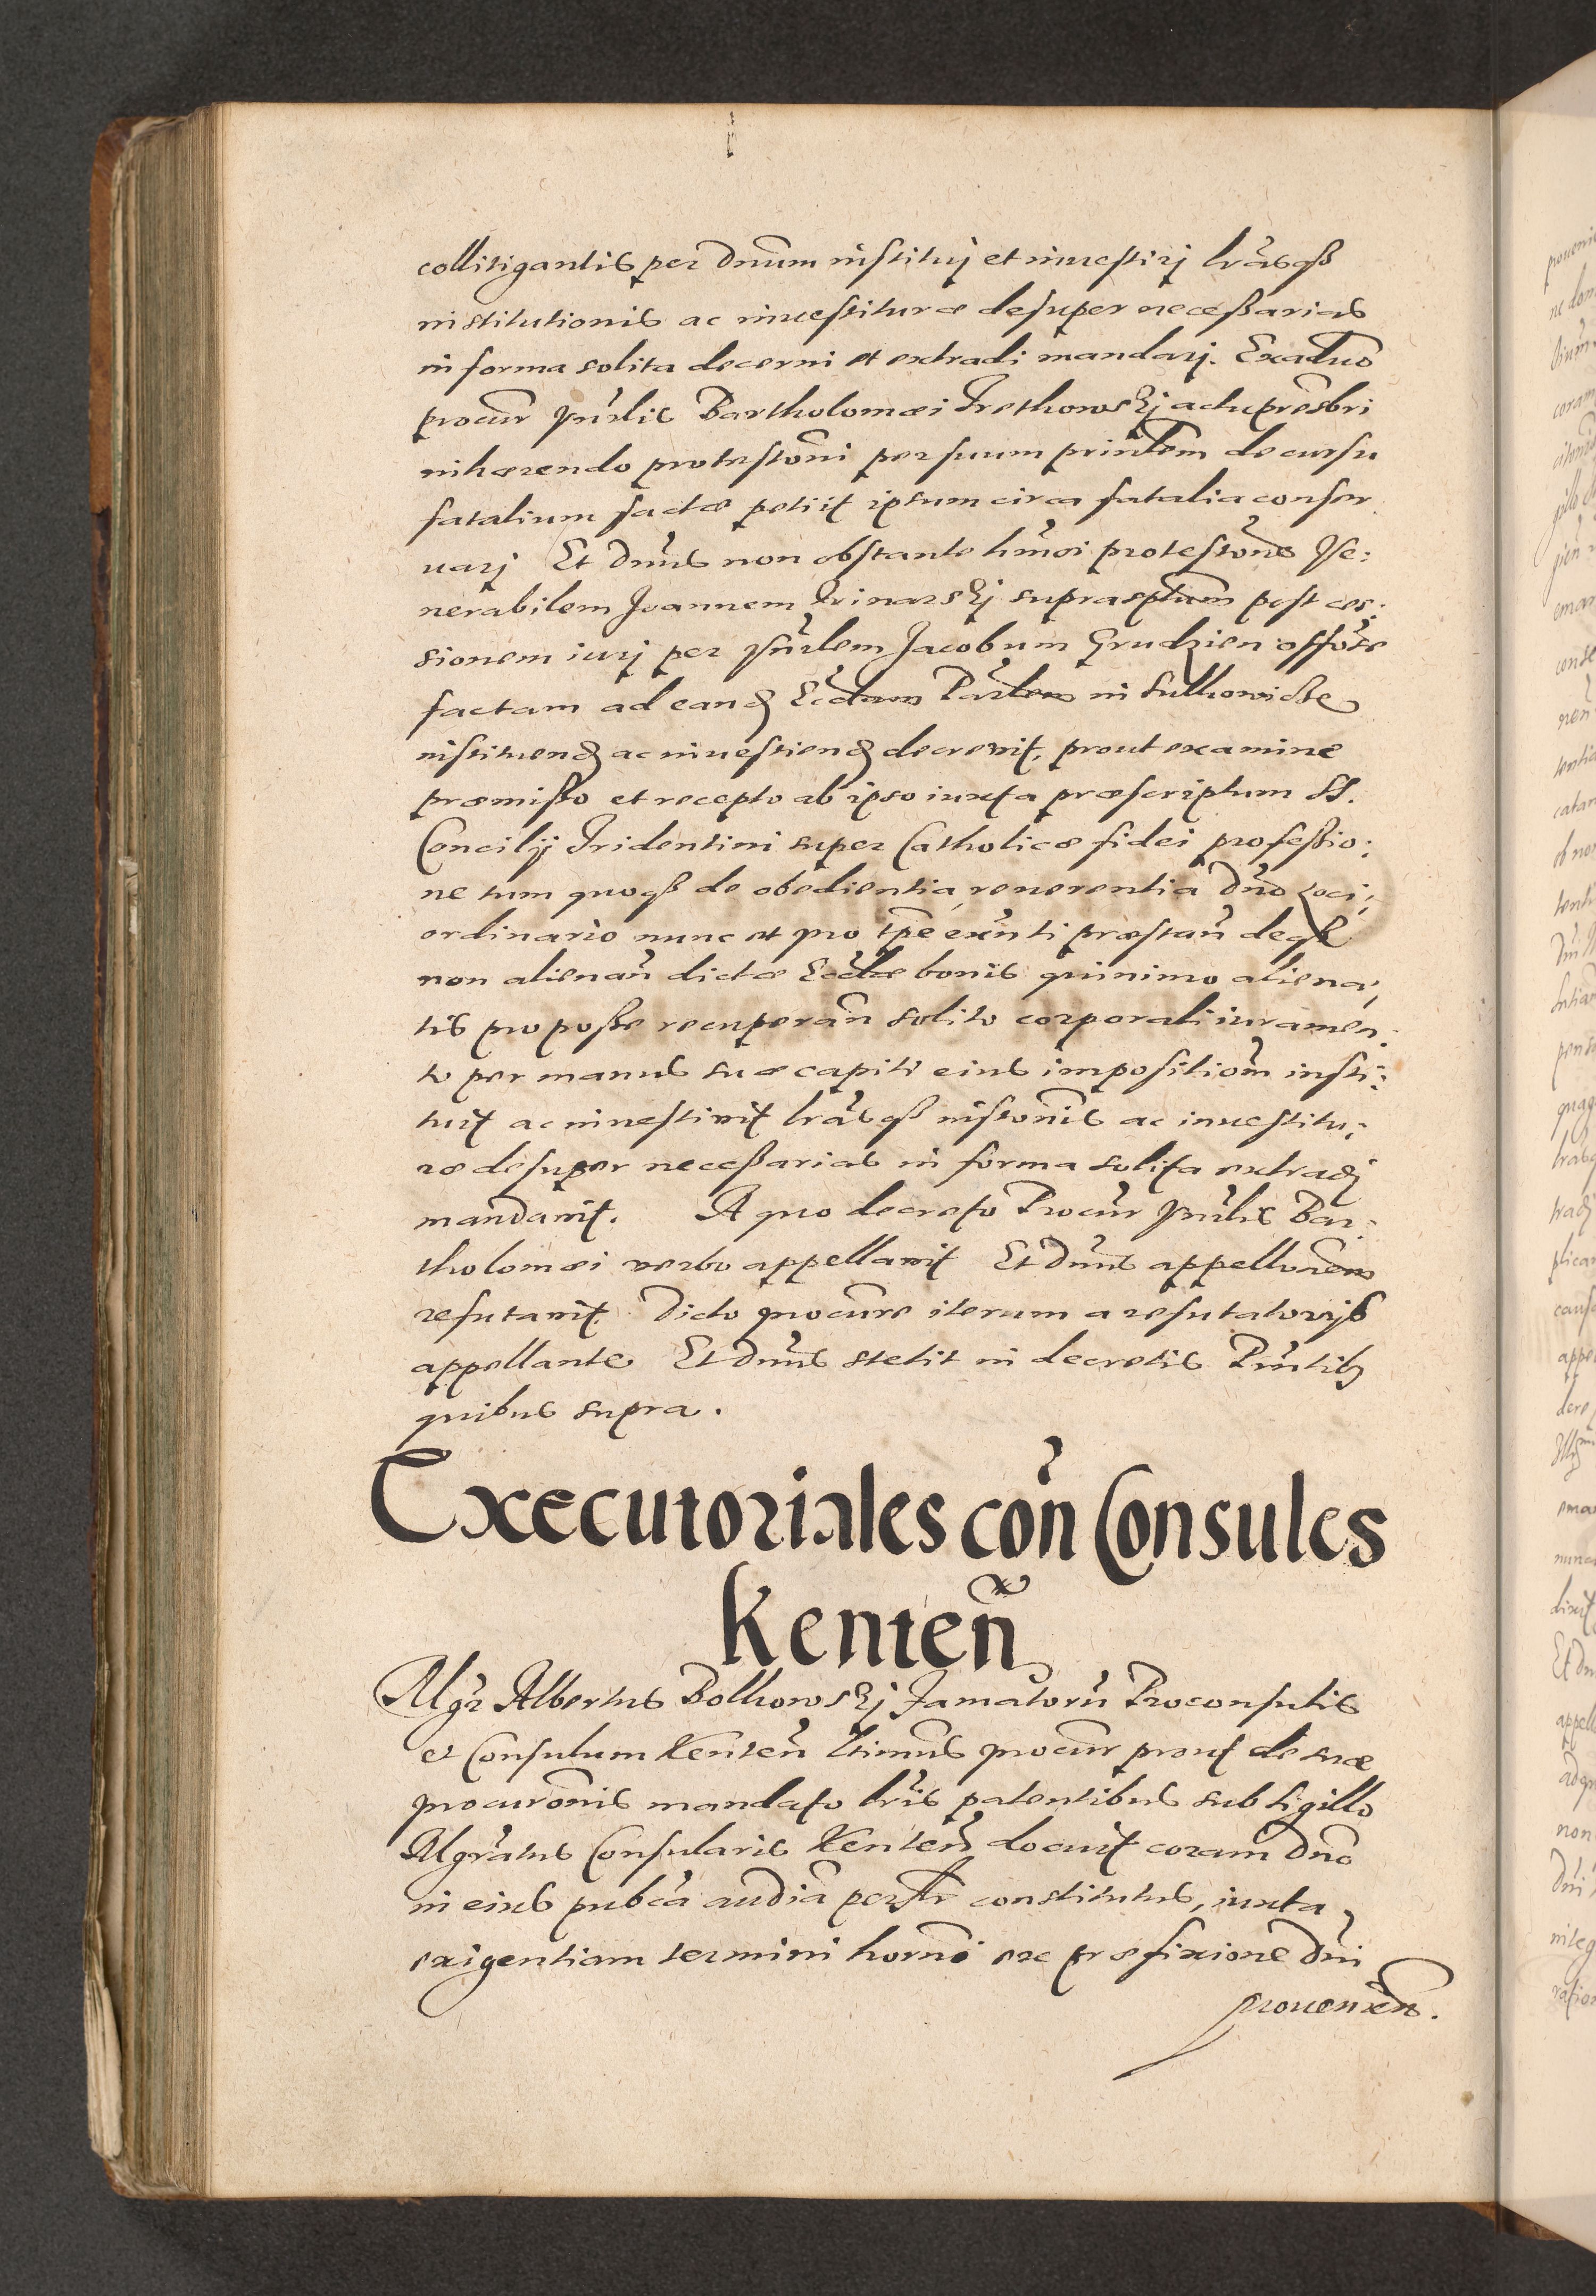 collitigantis per Dnum institui et inuestirj lrasq3
institutionis ac inuestituræ desuper necessarias
in forma solita decerni et extradi mandarj. Ex aduo
procur Vnrlis Bartholomæi Trethowskj actu presbri
inhærendo protestoni per suum prinlem de cursu
fatalium factæ petiit iptum circa fatalia conser
uarj Et Dnus non obstante hmoi protestone Ve:
nerabilem Joannem suprascptum post ces:
sionem iurj per Vnrlem Jacobum Grudzien
factam ad eand Ecclam Parlem in Sulkowicze
instituend ac inuestiend decreuit, prout examine
præmisso et recepto ab ipso iuxta præscriptum SS.
Concilij Tridentini super Catholicæ fidei professio:
ne tum quoq3 de obedientia reuerentia Dno Loci:
ordinario nunc et pro tpe exnti præstan deq3
non alienan dictæ Ecclae bonis quinimo aliena:
tis pro posse recuperan solito corporali iuramen:
to per manus suæ capiti eius impositiom insti:
tuit ac inuestiuit lrasq3 instonis ac inuestitu:
ræ desuper necessarias in forma solita extradj
mandauit. A quo decreto Procur Vnrlis Bar:
tholomæi verbo appellauit Et Dnus appellonem
refutauit. Dicto procure iterum a refutatorijs
appellante Et Dnus stetit in decretis Pntib3
quibus supra.
Executoriales con Consules
Kenten
Mgr Albertus Bolkowskj Famatoru Proconsulis
et Consulum Kenten ltimus procur prout de suæ
procuronis mandato lris patentibus sub sigillo
Mgratus Consularis Kenten docuit coram Dno
in eius pubca audia personlr constitutus, iuxta
exigentiam termini horni ex præfixione Dni
prouenien.